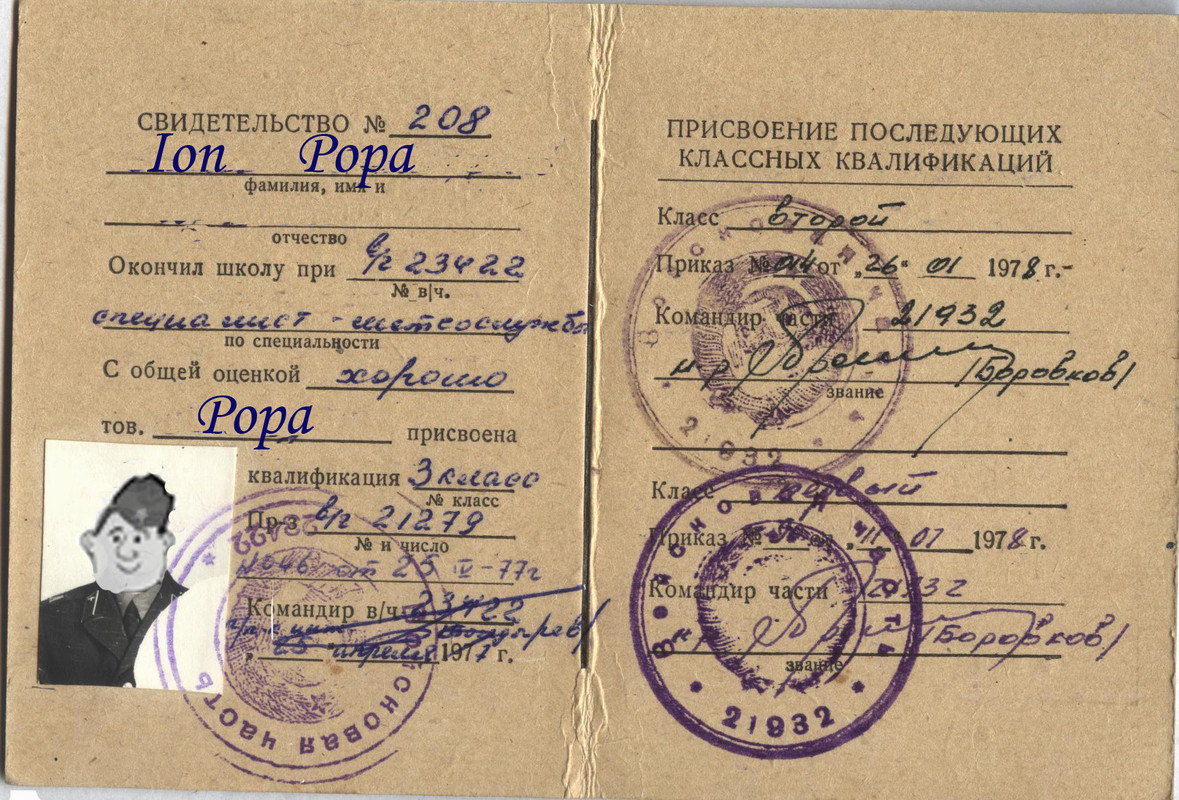 СВИДЕТЕЛЬСТВО № 208
Ion Popa
фамилия, имя и
отчество
Окончил школу при в/г 23422
№ в|ч.
специалист - метеослужбы
по специальности
С общей оценкой хорошо
тов. Popa присвоена
квалификация 3 класс
№ класс
Пр-з в/г 21279
№ и число
№046 от 25 IV-77г
Командир в/ч 23422
"25" апреля 1977 г.
23422
войсковая часть
ПРИСВОЕНИЕ ПОСЛЕДУЮЩИХ
КЛАССНЫХ КВАЛИФИКАЦИЙ
Класс второй
Приказ № 014 от „26" 01 1978 г.
Командир части 21932
/Боровков/
звание
21932
Класс первый
Приказ № от „11" 07 1978 г.
Командир части 21932
/Боровков/
звание
Войсковая часть
21932